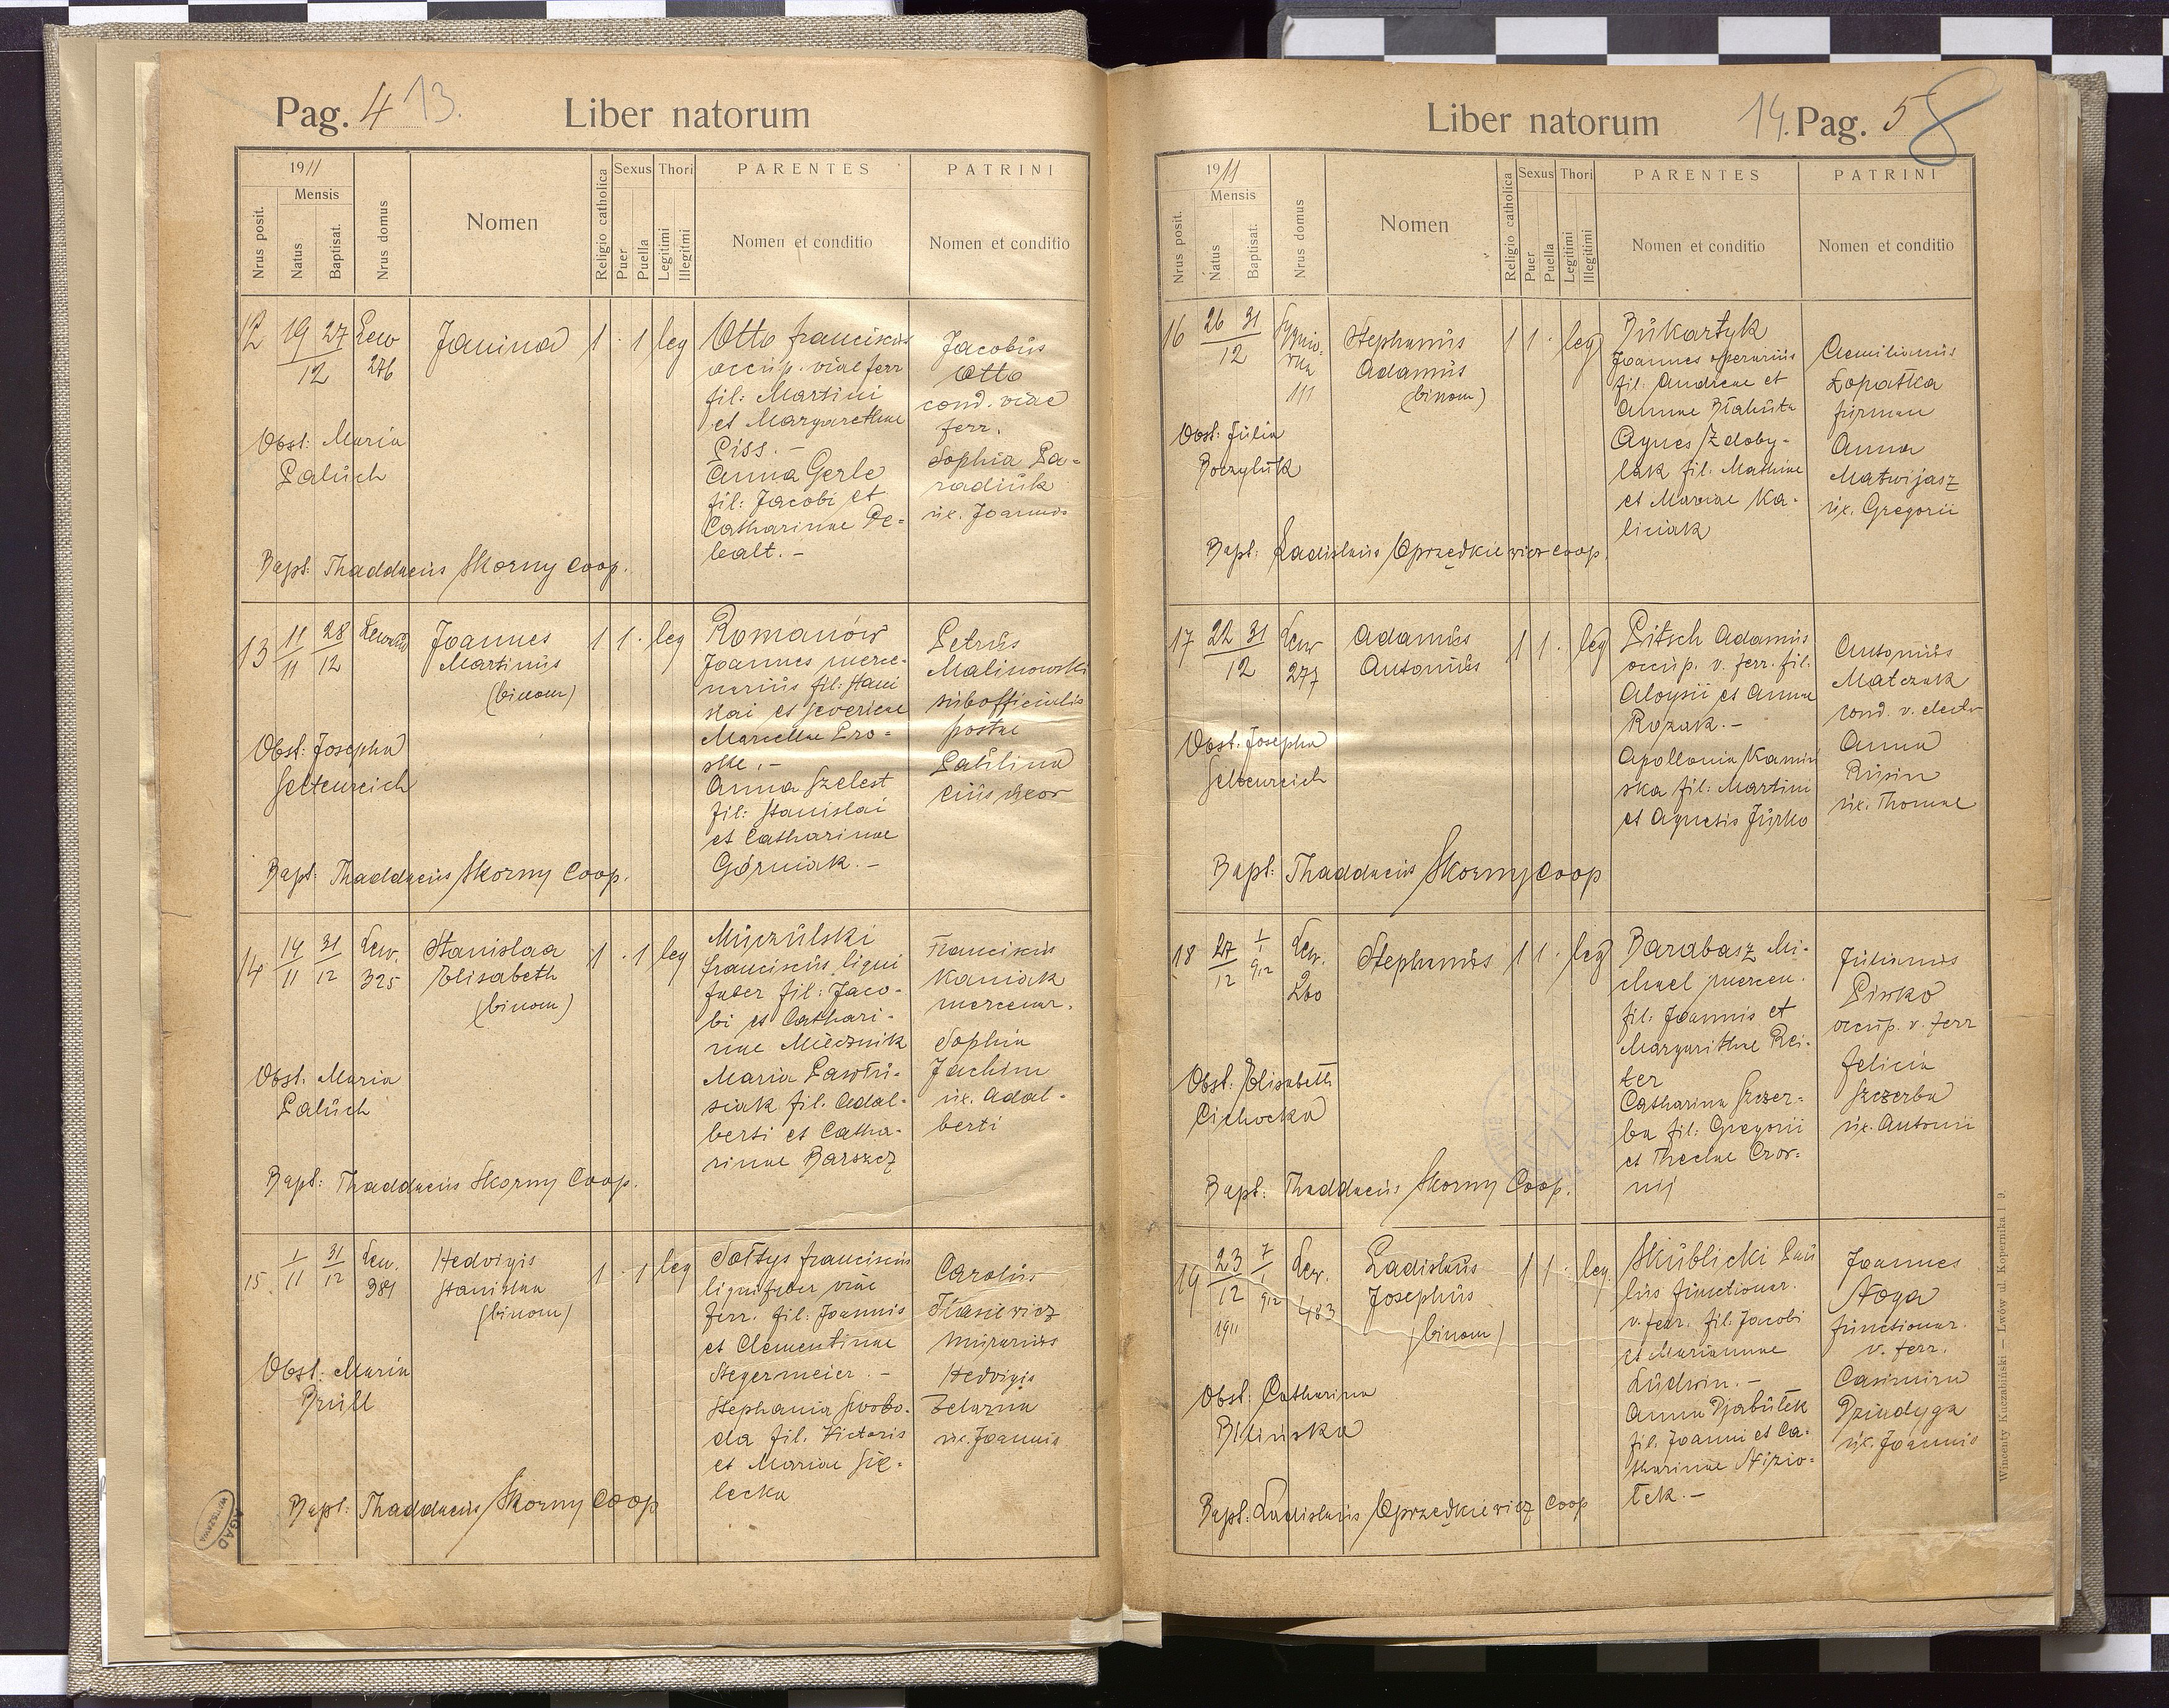 Pag. 4 13.
Liber natorum
1911
Mensis
Nrus posit.
Natus
Baptisat.
Nrus domus
Nomen
Religio catholica
Sexus
Puer
Puella
Thori
Legitimi
Illegitmi
PARENTES
Nomen et conditio
PATRINI
Nomen et conditio
12
19 27
12
Lew
276
Janina
1 · 1 leg
Otto Franciscus
occup. viae ferr
fil: Martini
et Margarethae
Piss. -
Anna Gerle
fil: Jacobi et
Catharinae De=
balt. -
Jacobus
Otto
cond. viae
ferr.
Sophia Pa=
radiuk
ux. Joannis
Obst: Maria
Paluch
Bapt: Thaddaeus Skorny Coop.
13
11 28
11 12
Joannes
Martinus
(binom)
1 1 · leg
Romanów
Joannes merce-
narius fil: Stani
slai et Severinae
Anna Szelest
fil: Stanislai
et Catharinae
Górniak. -
Petrus
Malinowski
subofficialis
postae
Paulina
Obst: Josepha
Geltenreich
Bapt: Thaddaeus Skorny Coop.
14
14 31
11 12
Lew.
325
Stanislaa
Elisabeth
(binom)
1 · 1 leg
Muczulski
Franciscus ligni
faber fil: Jaco-
bi et Cathari-
nae Miecznik
Maria Pawlu-
siak fil. Adal-
berti et Catha-
rinae Barszcz
Franciscus
Kaniak
mercenar.
Sophia
Jachim
ux. Adal-
berti
Obst. Maria
Paluch
Bapt: Thaddaeus Skorny Coop.
15
1 31
11 12
Lew.
381
Hedvigis
Stanislaa
(binom)
1 · 1 leg
Sołtys Franciscus
lignifaber viae
ferr. fil: Joannis
et Clementinae
Stegermeier. -
Stephania Swobo-
da fil. Victoris
et Mariae Sie-
lecka
Carolus
Stasiewicz
murarius
Hedvigis
Żelazna
ux. Joannis
Obst: Maria
Brüll
Bapt: Thaddaeus Skorny Coop
AGAD
WARSZAWA
Liber natorum
14. Pag. 5 8
1911
Mensis
Nrus posit.
Natus
Baptisat.
Nrus domus
Nomen
Religio catholica
Sexus
Puer
Puella
Thori
Legitimi
Illegitimi
PARENTES
Nomen et conditio
PATRINI
Nomen et conditio
16
26 31
12
111
Stephanus
Adamus
(binom)
1 1 · leg
Bukartyk
Joannes operarius
fil: Andreae et
Annae Błahuta
Agnes Zdoby-
lak fil: Mathiae
et Mariae Ka-
liciak
Aemilianus
Łopatka
furman
Anna
Matwijasz
ux. Gregorii
Obst: Julia
Boczyluk
Bapt: Ladislaus Oprzędkiewicz coop.
17
22 31
12
Lew
277
Adamus
Antonius
1 1 · leg
Pitsch Adamus
occup. v. ferr. fil.
Aloysii et Annae
Rozak. -
Apollonia Kamin
ska fil: Martini
et Agnetis Jurko
Antonius
Matczak
cond. v. electr
Anna
Rusin
ux. Thomae
Obst. Josepha
Geltenreich
Bapt: Thaddaeus Skorny Coop
18
27 1
12 1
912
Lew.
260
Stephanus
1 1 · leg
Barabasz Mi-
chael mercen.
fil: Joannis et
Margarithae Rei-
ter
Catharina Szczer=
ba fil: Gregorii
et Theclae Czor=
nij
Julianus
Pirko
occup. v. ferr
Felicia
Szczerba
ux. Antonii
Obst: Elisabeth
Cichocka
Bapt: Thaddaeus Skorny Coop.
19
23 7
12 1
1911 912
Lew.
483
Ladislaus
Josephus
(binom)
1 1 · leg.
Skublicki Pau
lus functionar.
v. ferr. fil. Jacobi
et Mariannae
Ludwin. -
Anna Dziabułek
fil. Joanni et Ca-
tharinae Nizio-
łek. -
Joannes
Noga
functionar.
v. ferr.
Casimira
Dziudyga
ux. Joannis
Obst: Catharina
Blińska
Bapt: Ladislaus Oprzędkiewicz Coop
Wincenty Kuczabiński — Lwów ul. Kopernika l 9.